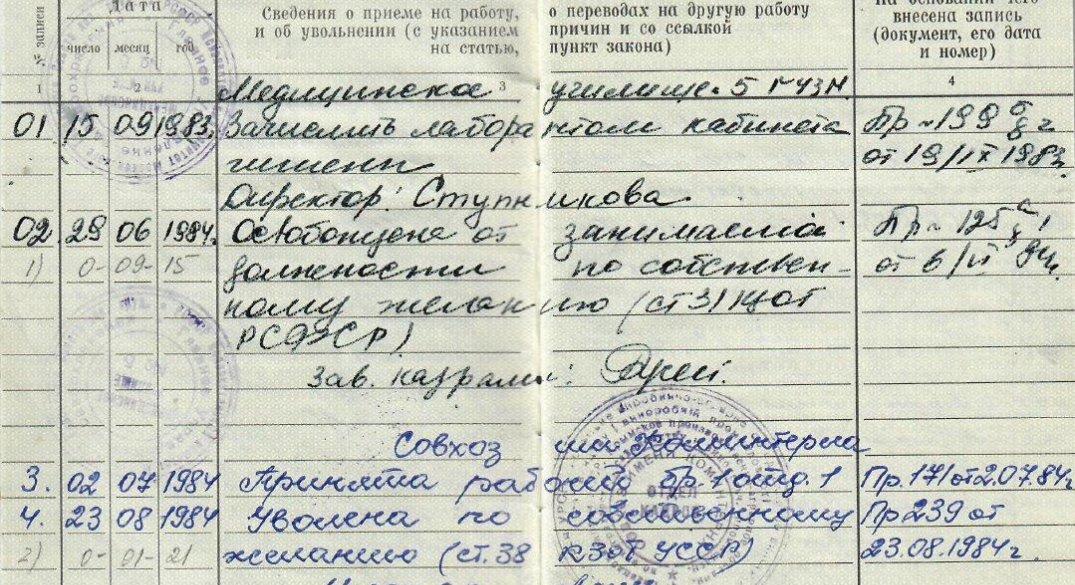 № записи
Дата
число месяц год
Сведения о приеме на работу, о переводах на другую работу
и об увольнении (с указанием причин и со ссылкой
на статью, пункт закона)
На основании чего
внесена запись
(документ, его дата
и номер)
1 2 3 4
Медицинское училище 5 ГУЗМ
01 15 09 1983. Зачислить лаборантом кабинета Пр ~ 199
гигиены от 19/IX 1983.
Директор: Ступникова
02. 29 06 1984. Освобождена от занимаемой Пр ~ 125
1) 0- 09- 15 должности по собствен- от 6/VI 84г.
ному желанию (ст 31 КЗоТ
РСФСР)
Зав. кадрами:
Совхоз им. Коминтерна
3. 02 07 1984 Принята рабочей бр. 1 отд. 1 Пр. 171 от 2.07.84г
4. 23 08 1984 Уволена по собственному Пр 239 от
2) 0- 01- 21 желанию (ст. 38 КЗОТ УССР) 23.08.1984г.
ОТДЕЛ